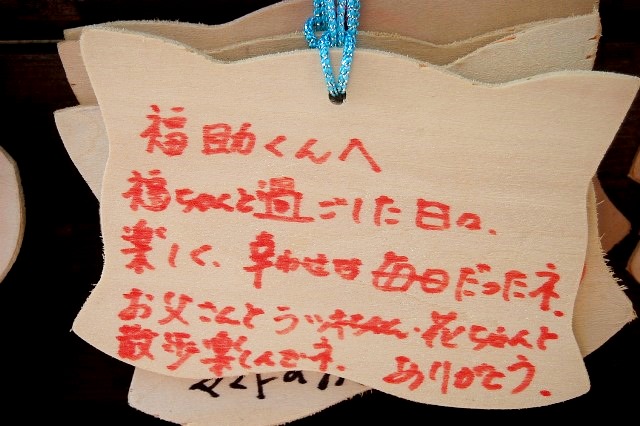 福助くんへ
福ちゃんと過ごした日々、
楽しく、幸わせす毎日だったネ、
お父さんとうッキちゃん・花ちゃんと
散歩楽しんでネ、ありがとう、